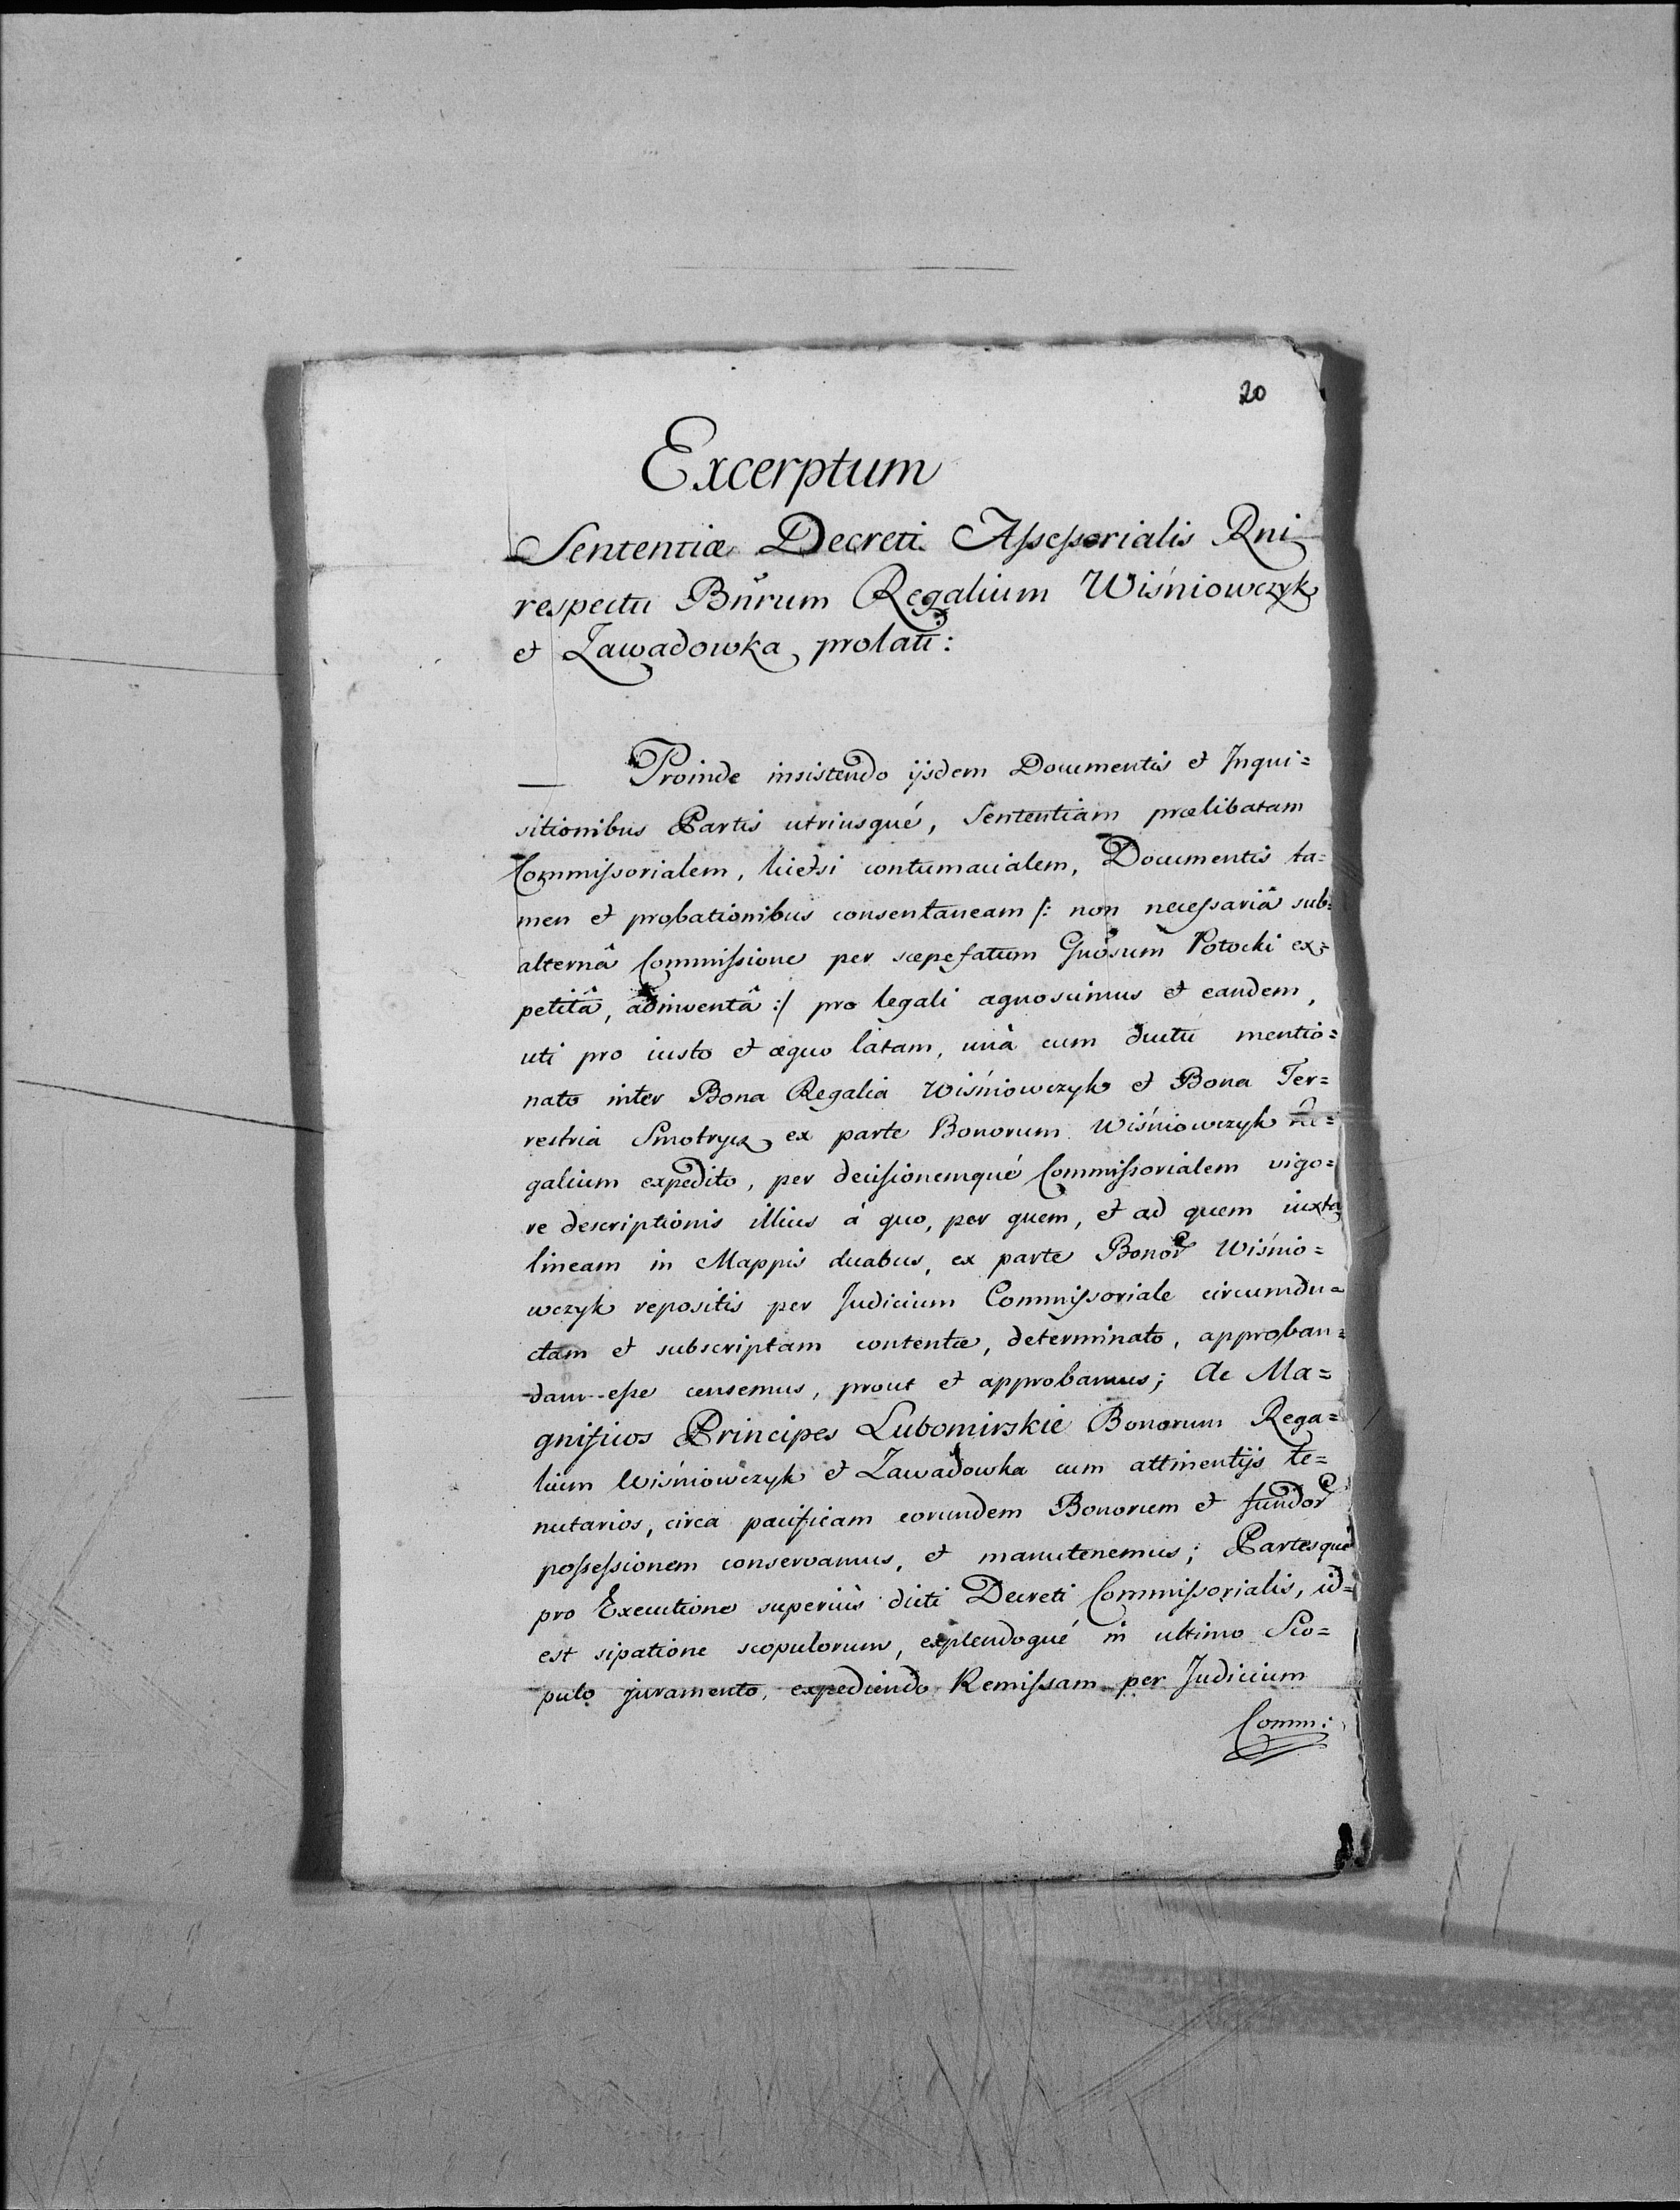 20
Excerptum
Sententiæ Decreti Assessorialis Rni
respectu Bñrum Regalium Wiśniowczyk
et Zawadowka prolati:
Proinde insistendo ijsdem Documentis et Inqui=
sitionibus Partis utriusqué, Sententiam prælibatam
Commissorialem, licetsi contumacialem, Documentis ta=
men et probationibus consentaneam /: non necessariâ sub=
alternâ Commissione per sæpefatum Gñosum Potocki ex=
petitâ, adinventâ :/ pro legali agnoscimus et eandem,
uti pro iusto et æquo latam, unà cum ductu mentio=
nato inter Bona Regalia Wiśniowczyk et Bona Ter=
restria Smotrycz ex parte Bonorum Wiśniowczyk Re=
galium expedito, per decisionemqué Commissorialem vigo=
re descriptionis illius à quo, per quem, et ad quem iuxta
lineam in Mappis duabus, ex parte Bonor Wiśnio=
wczyk repositis per Judicium Commissoriale circumdu=
ctam et subscriptam contentæ, determinato, approban=
dam esse censemus, prout et approbamus; Ac Ma=
gnificos Principes Lubomirskie Bonorum Rega=
lium Wiśniowczyk et Zawadowka cum attinentijs te=
nutarios, circa pacificam eorundem Bonorum et fundor
possessionem conservamus, et manutenemus; Partesqué
pro Executione superiùs dicti Decreti Commissorialis, id=
est sipatione scopulorum, explendoqué in ultimo Sco=
pulo juramento, expediendo Remissam per Judicium
Comm: